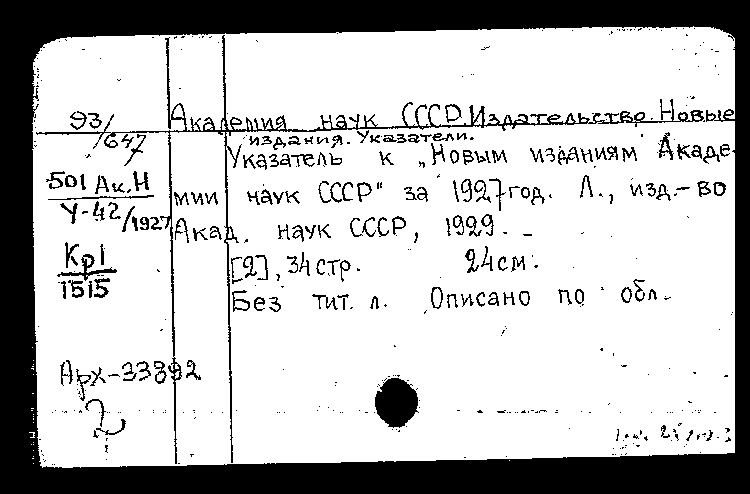 93/647
Академия наук СССР. Издательство. Новые
издания. Указатели.
Указатель к „Новым изданиям Акаде-
501 Ак.Н
мии наук СССР" за 1927 год. Л., изд.-во
У-42/1927
Акад. наук СССР, 1929. -
Кр1
1515
[2], 34 стр. 24 см.
Без тит. л. Описано по обл.
Арх-33892
2